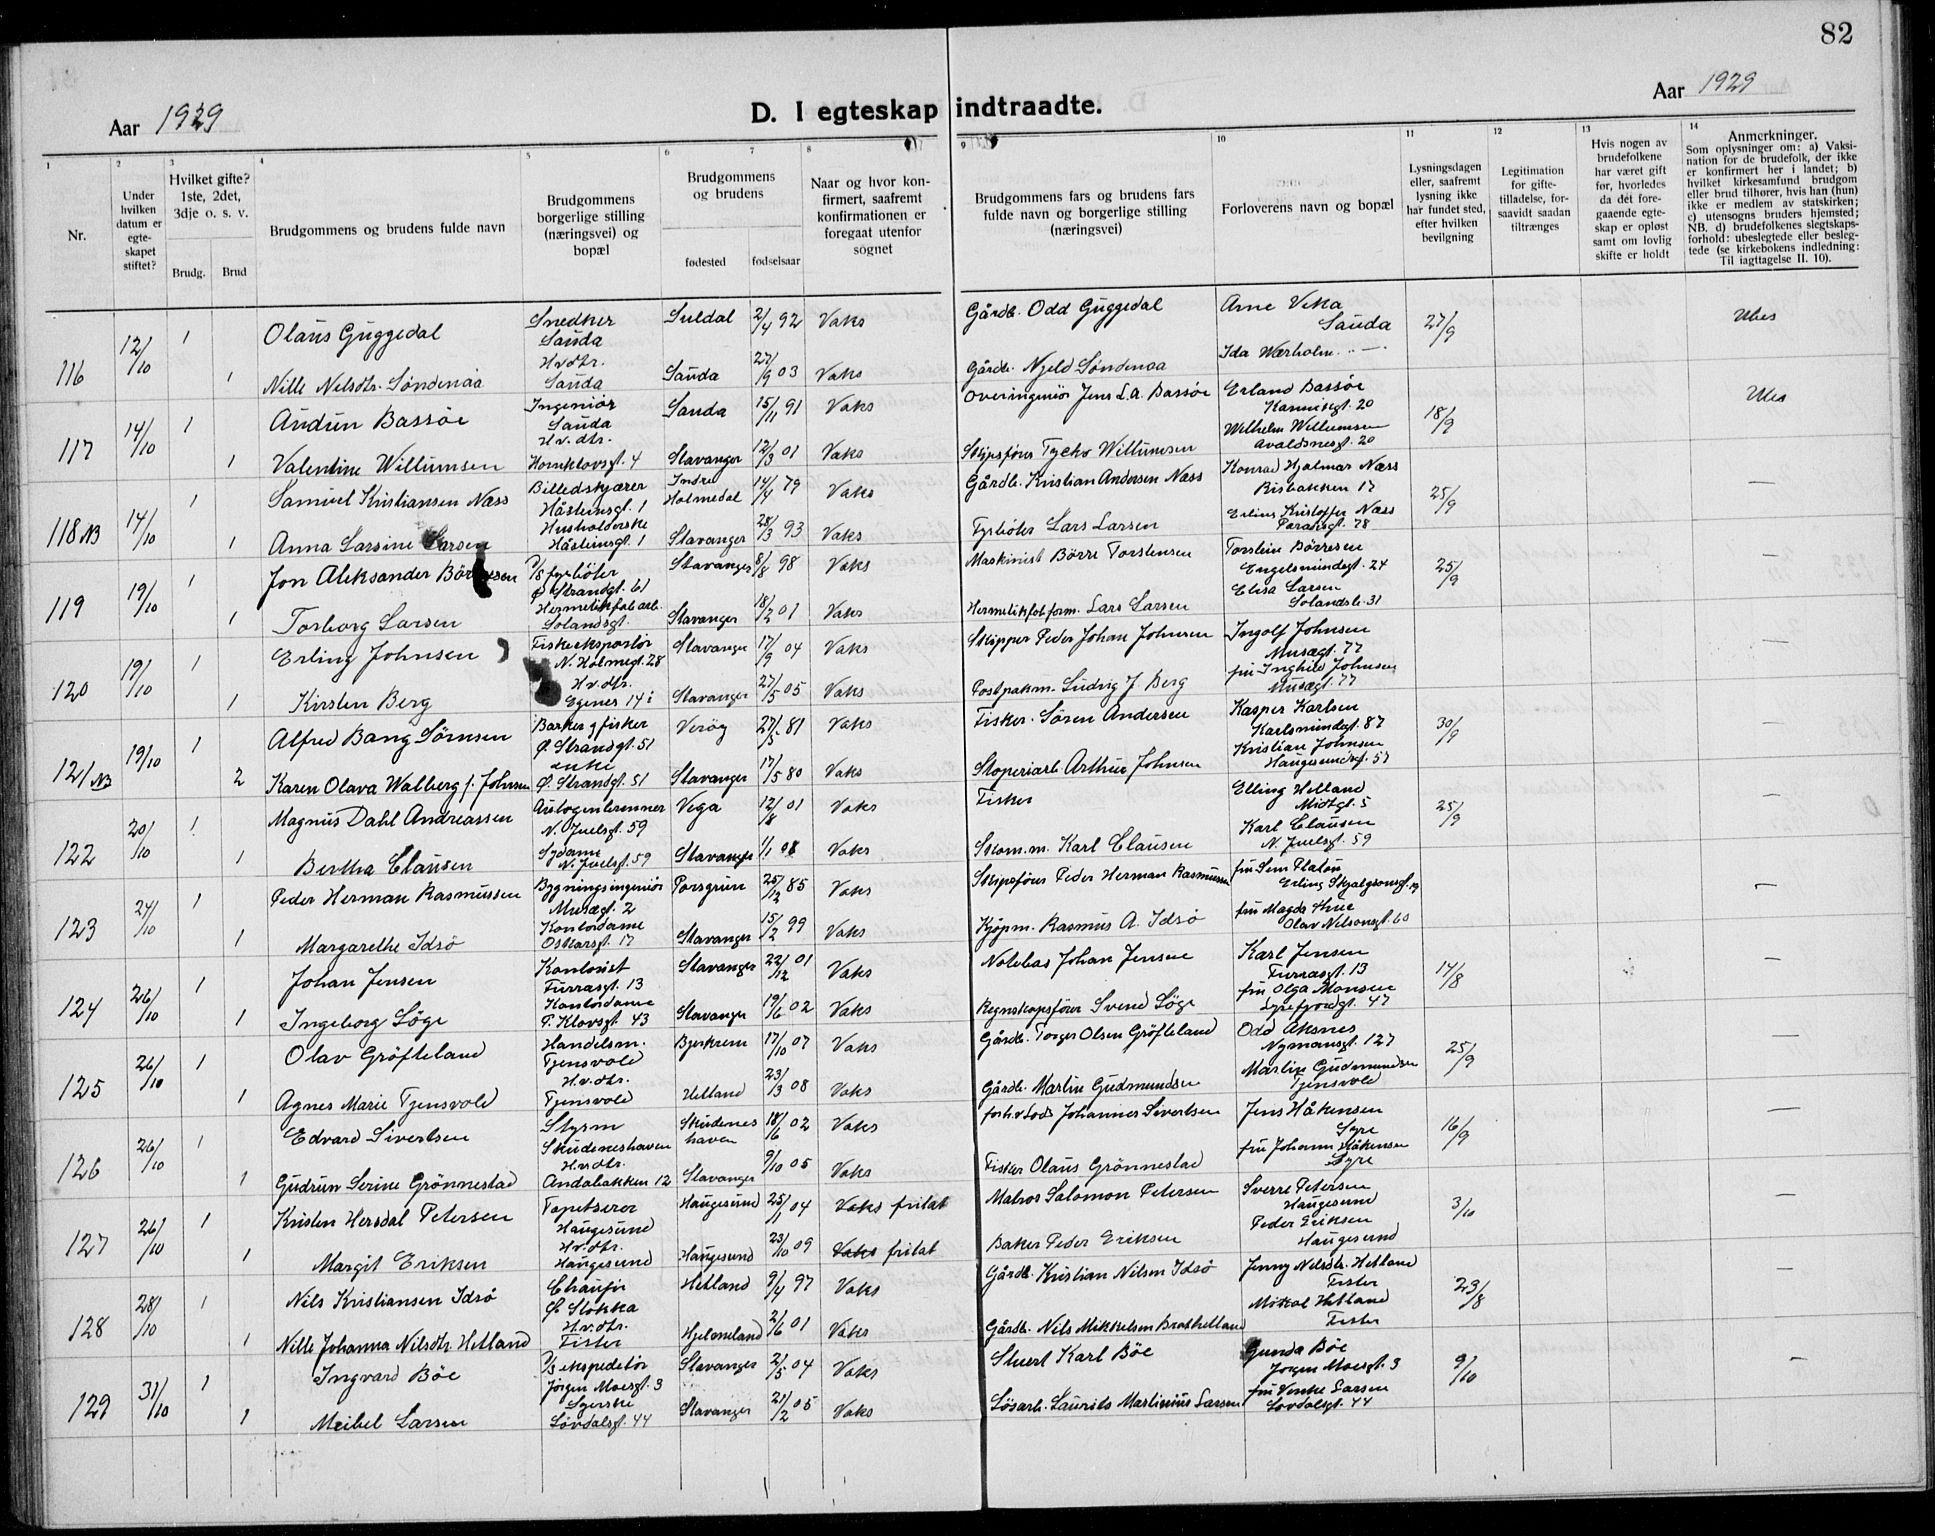 82
Aar 1929
D. I egteskap indtraadte.
Aar 1929
1 2 3 4 5 6 7 8 9 10 11 12 13 14
Nr.
Under hvilken datum er egte-skapet stiftet?
Hvilket gifte? 1ste, 2det, 3dje o. s. v.
Brudg. Brud
Brudgommens og brudens fulde navn
Brudgommens borgerlige stilling (næringsvei) og bopæl
Brudgommens og brudens
fødested fødselsaar
Naar og hvor kon-firmert, saafremt konfirmationen er foregaat utenfor sognet
Brudgommens fars og brudens fars fulde navn og borgerlige stilling (næringsvei)
Forloverens navn og bopæl
Lysningsdagen eller, saafremt lysning ikke har fundet sted, efter hvilken bevilgning
Legitimation for gifte-tilladelse, for-saavidt saadan tiltrænges
Hvis nogen av brudefolkene har været gift før, hvorledes da det fore-gaaende egte-skap er opløst samt om lovlig skifte er holdt
Anmerkninger.
Som oplysninger om: a) Vaksi-nation for de brudefolk, der ikke er konfirmert her i landet; b) hvilket kirkesamfund brudgom eller brud tilhører, hvis han (hun) ikke er medlem av statskirken; c) utensogns bruders hjemsted; NB. d) brudefolkenes slegtskaps-forhold: ubeslegtede eller besleg-tede (se kirkebokens indledning: Til iagttagelse II. 10).
116 12/10 1 Olaus Guggedal Snedker Sauda Suldal 2/4 92 Vaks Gårdb. Odd Guggedal Arne Veka Sauda 27/9 Ubes
1 Nille Nilsdtr. Søndenaa Hv.dtr. Sauda Sauda 27/9 03 Vaks Gårdb. Njeld Søndenaa Ida Wærholm
117 14/10 1 Audun Bassøe Ingeniør Sauda Sauda 15/11 91 Vaks Overingeniør Jens L.A. Bassøe Erland Bassøe Kannikgt. 20 18/9 Ubes
1 Valentine Willumsen Hv.dtr. Hornklovsgt. 4 Stavanger 12/3 01 Vaks Skipsfører Tycho Willumsen Wilhelm Willumsen Avaldsnesgt. 20
118 NB 14/10 1 Samuel Kristiansen Næss Billedskjærer Håsteinsgt. 1 Indre Holmedal 14/4 79 Vaks Gårdb. Kristian Andersen Næss Konrad Hjalmar Næss Risbakken 17 25/9 —
1 Anna Larsine Larsen Husholderske Håsteinsgt. 1 Stavanger 28/3 93 Vaks Fyrbøter Lars Larsen Erling Kristoffer Næss Paradisgt. 78
119 19/10 1 Jon Aleksander Börresen D/S fyrbøter Ø Strandgt. 61 Stavanger 8/8 98 Vaks Maskinist Börre Torstensen Torstein Börresen Engelsmindegt. 24 25/9 —
1 Torborg Larsen Hermetikfab.arb. Solandsgt. Stavanger 18/2 01 Vaks Hermetikfab.form. Lars Larsen Elisa Larsen Solandsb. 31
120 19/10 1 Erling Johnsen Fiskeeksportør N. Holmegt. 28 Stavanger 17/9 04 Vaks Skipper Peder Johan Johnsen Ingolf Johnsen Musægt. 77 —
1 Kirsten Berg Hv.dtr. Egenes 14 Stavanger 27/5 05 Vaks Postpakm. Ludvig J. Berg fru Inghild Johnsen Musægt. 77
121 NB 19/10 1 Alfred Bang Sörnsen Barker & fisker Ø. Strandgt. 51 Verøy 27/3 81 Vaks Fisker Sören Andersen Kasper Karlsen Karlsmindegt. 87 30/9 —
2 Karen Olava Walberg f. Johnsen enke Ø. Strandgt. 51 Stavanger 17/5 80 Vaks Stoperiarb. Arthur Johnsen Kristian Johnsen Haugesundsgt. 57
122 20/10 1 Magnus Dahl Andreassen Autogenbrenner N. Juelsgt. 59 Vega 12/8 01 Vaks Fisker Elling Helland Midtgt. 5 25/9 —
1 Bertha Clausen Sydame N. Juelsgt. 59 Stavanger 1/1 08 Vaks Skom.m. Karl Clausen Karl Clausen N. Juelsgt. 59
123 24/10 1 Peder Herman Rasmussen Bygningsingeniør Musægt. 2 Porsgrun 25/12 85 Vaks Skipsfører Peder Herman Rasmussen fru Sem Platou Erling Skjalgsonsgt. —
1 Margarethe Idsö Kontordame Oskarsgt. 17 Stavanger 15/2 99 Vaks Kjöpm. Rasmus A. Idsø fru Magda Thue Olav Nilsonsgt. 60
124 26/10 1 Johan Jensen Kontorist Furrasgt. 13 Stavanger 22/12 01 Vaks Notebas Johan Jensen Karl Jensen Furrasgt. 13 14/8 —
1 Ingeborg Söge Kontordame T. Klovsgt. 43 Stavanger 19/6 02 Vaks Regnskapsfører Svend Söge fru Olga Monsen Lysefjordgt. 47
125 26/10 1 Olav Gröfteland Handelsm. Tjensvold Bjerkreim 17/10 07 Vaks Gårdb. Torger Olsen Gröfteland Odd Aksnes Nymansgt. 127 25/9 —
1 Agnes Marie Tjensvold Hv.dtr. Tjensvold Hetland 23/3 08 Vaks Gårdb. Martin Gudmundsen Martin Gudmundsen Tjensvold
126 26/10 1 Edvard Sivertsen Styrm Skudeneshavn Skudeneshaven 18/6 02 Vaks forh.v. Lods Johannes Sivertsen Jens Håkensen Syre 16/9 —
1 Gudrun Serine Grönnestad Hv.dtr. Andabakken 12 Stavanger 9/10 05 Vaks Fisker Olaus Grönnestad fru Johann Håkensen Syre
127 26/10 1 Kristen Hersdal Petersen Tapetserer Haugesund Haugesund 25/1 04 Vaks fritat Matros Salomon Petersen Sverre Petersen Haugesund 3/10 —
1 Margit Eriksen Hv.dtr. Haugesund Haugesund 23/10 09 Vaks fritat Baker Peder Eriksen Peder Eriksen Haugesund
128 28/10 1 Nils Kristiansen Idsø Chauffør Ø Stokka Hetland 9/4 97 Vaks Gårdb. Kristian Nilsen Idsø Jenny Nilsdtr. Hetland Fister 23/8 —
1 Nille Johanna Nilsdtr. Hetland Hv.dtr. Fister Hjelmeland 2/6 01 Vaks Gårdb. Nils Mikkelsen Bratthetland Mikal Hetland Fister
129 31/10 1 Ingvard Böe D/S ekspeditør Jörgen Moesgt. 3 Stavanger 2/5 04 Vaks Stuert Karl Böe Gunda Böe Jörgen Moesgt. 3 9/10 —
1 Meibel Larsen Syerske Lövdalsgt. 44 Stavanger 21/2 05 Vaks Løsarb. Laurits Martinius Larsen fru Venke Larsen Lövdalsgt. 44